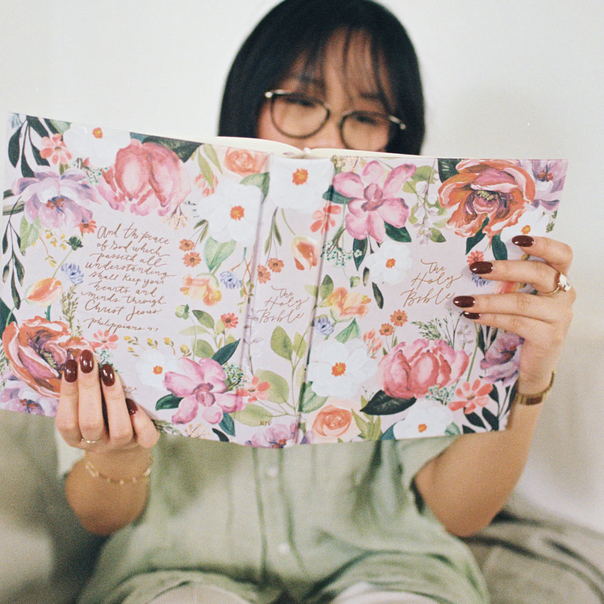 And the peace
of God which
passeth all
understanding
shall keep your
hearts and
minds through
Christ Jesus
Philippians 4:7
The
Holy
Bible
The
Holy
Bible
KJV